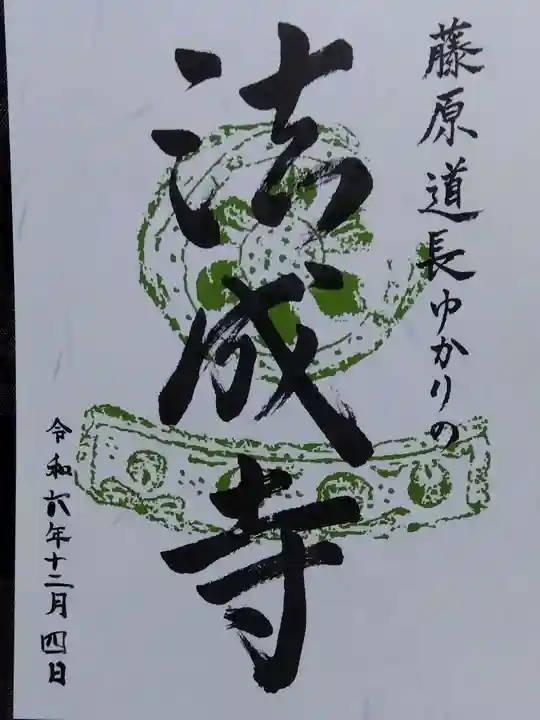 藤原道長ゆかりの
法成寺
令和六年十二月四日